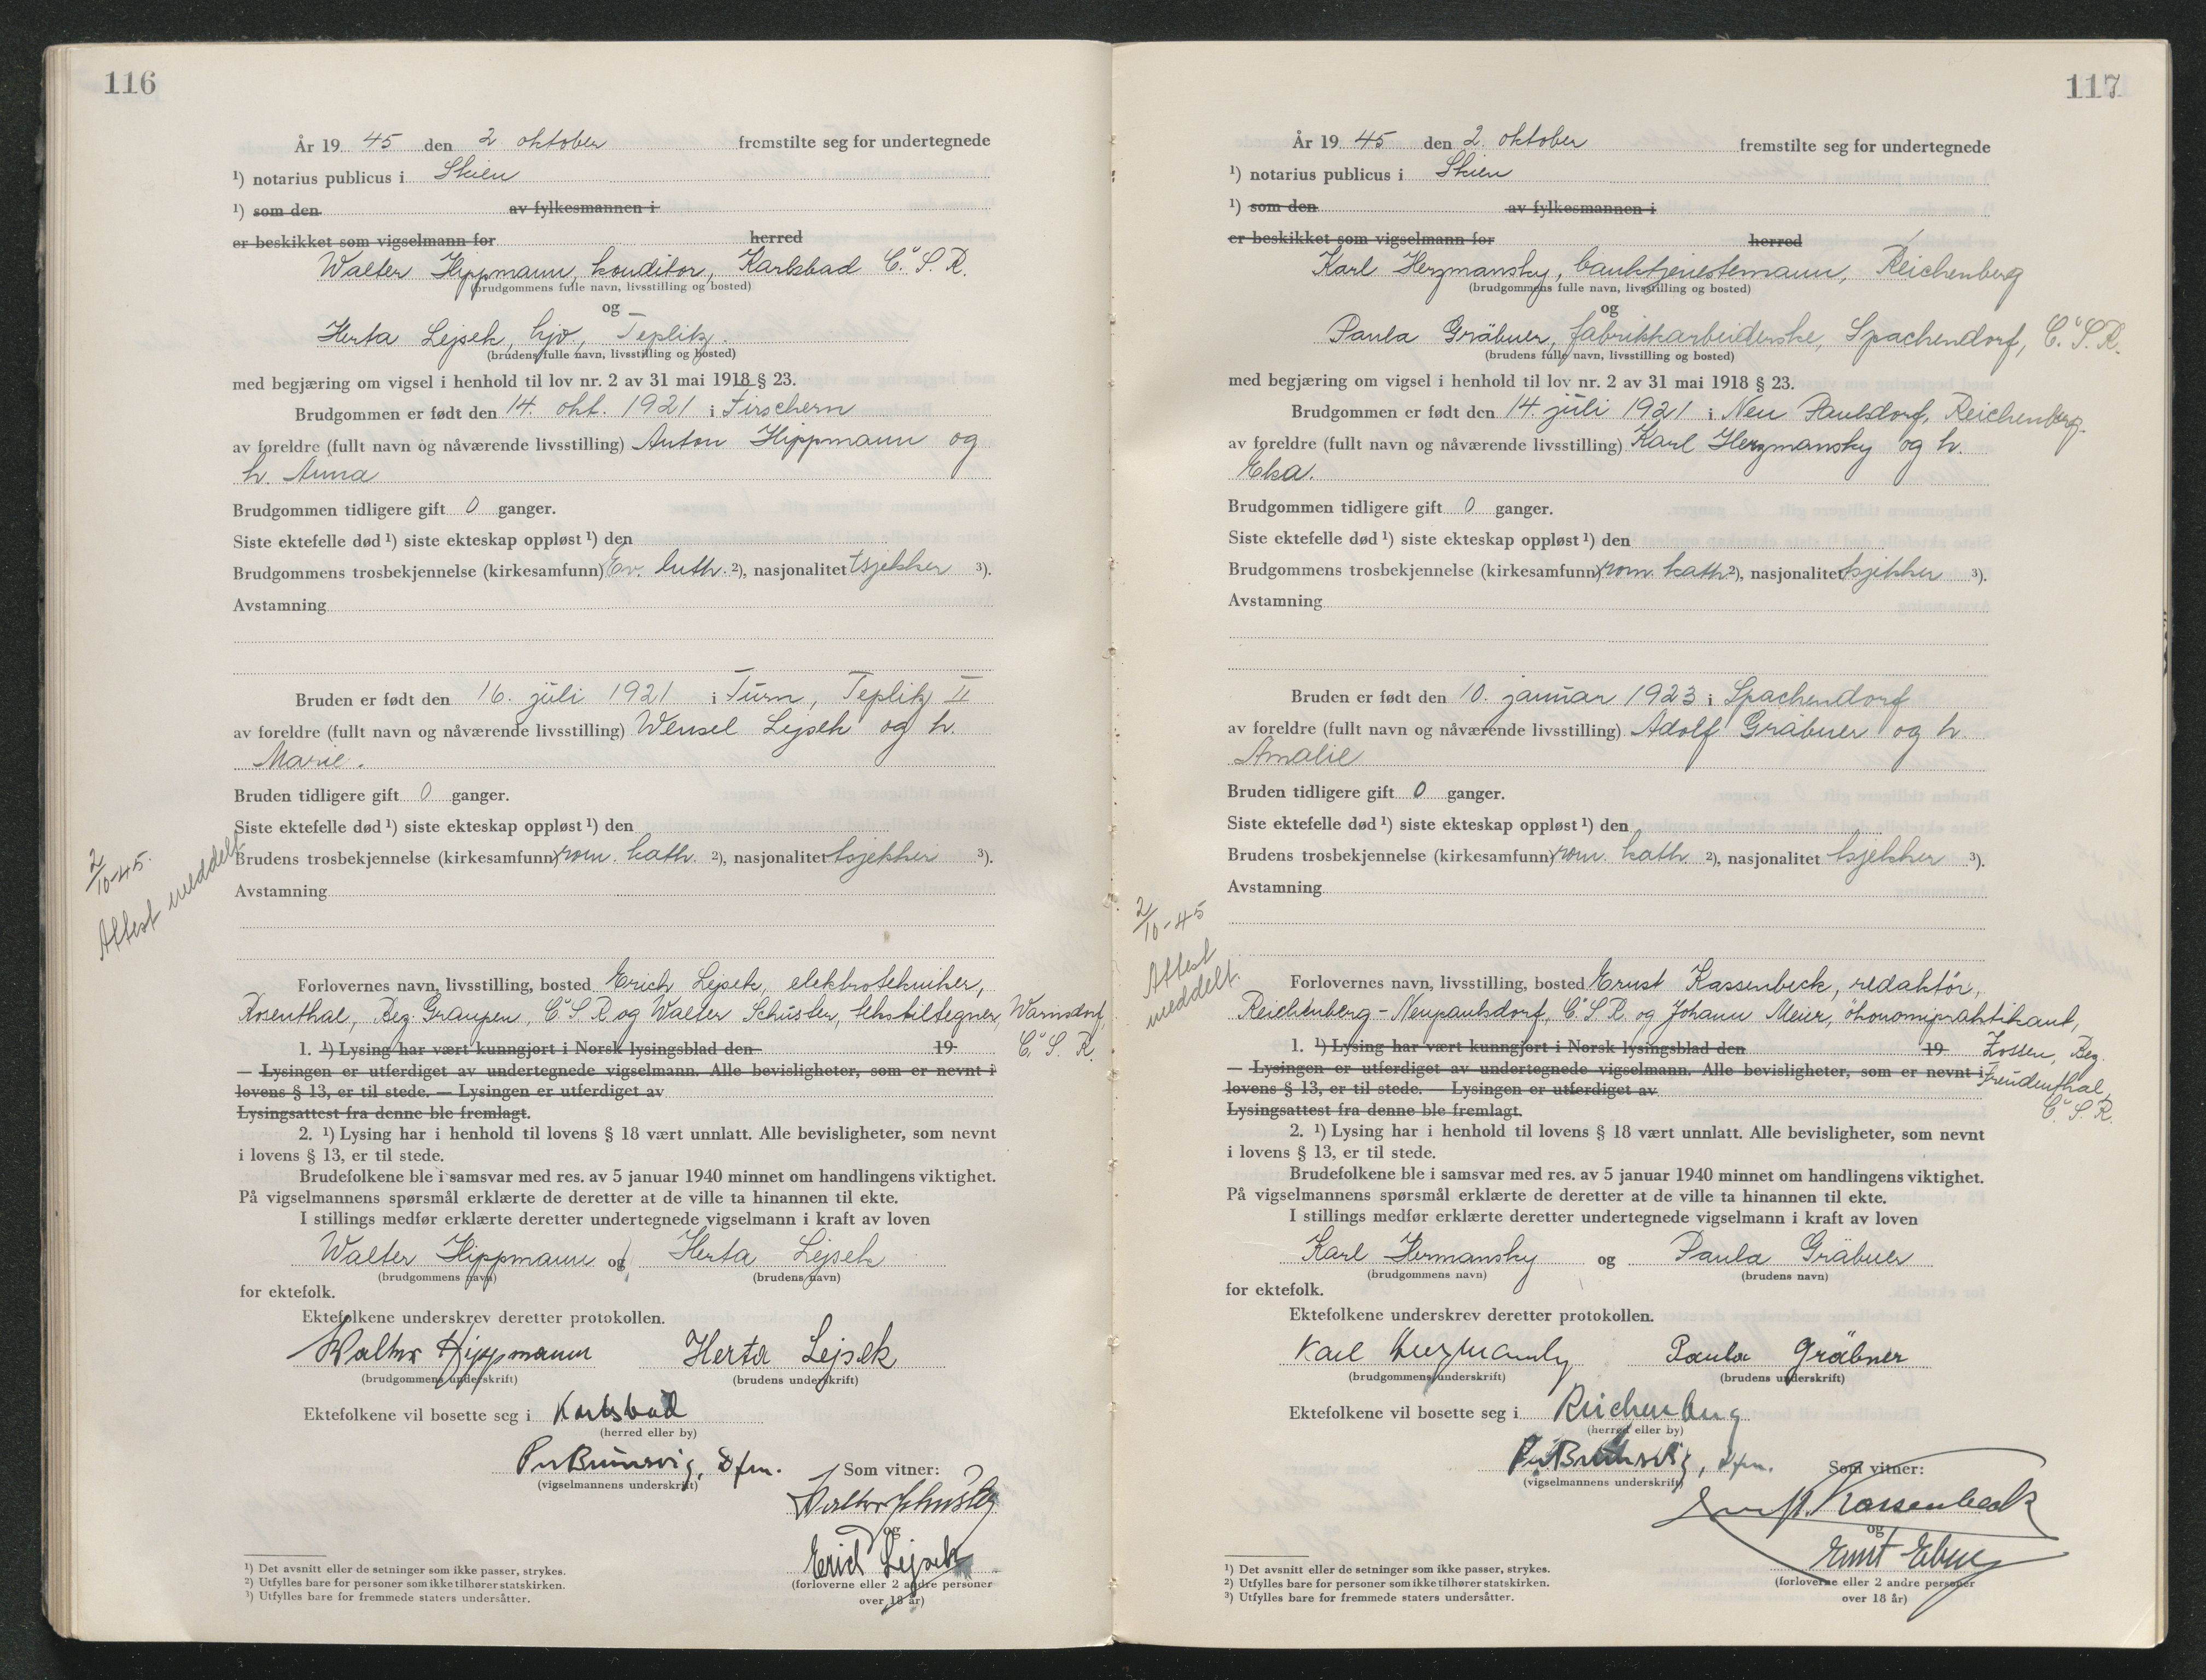 116
År 19 45 den 2 oktober fremstilte seg for undertegnede
¹) notarius publicus i Skien
¹) som den av fylkesmannen i
er beskikket som vigselmann for herred
Walter Hippmann, konditor, Karlsbad Č.S.R.
(brudgommens fulle navn, livsstilling og bosted)
og
Herta Lejsek, hjv., Teplitz.
(brudens fulle navn, livsstilling og bosted)
med begjæring om vigsel i henhold til lov nr. 2 av 31 mai 1918 § 23.
Brudgommen er født den 14. okt. 1921 i Tirschern
av foreldre (fullt navn og nåværende livsstilling) Anton Hippmann og
h. Anna
Brudgommen tidligere gift 0 ganger.
Siste ektefelle død ¹) siste ekteskap oppløst ¹) den
Brudgommens trosbekjennelse (kirkesamfunn) Ev. luth. ²), nasjonalitet tsjekker ³).
Avstamning
Bruden er født den 16. juli 1921 i Turn, Teplitz II
av foreldre (fullt navn og nåværende livsstilling) Wensel Lejsek og h.
Marie.
Bruden tidligere gift 0 ganger.
Siste ektefelle død ¹) siste ekteskap oppløst ¹) den
Brudens trosbekjennelse (kirkesamfunn) rom. kath. ²), nasjonalitet tsjekker ³).
2/10-45.
Attest meddelt
Avstamning
Forlovernes navn, livsstilling, bosted Erich Lejsek, elektrotekniker,
Rosenthal, Bez. Graupen, Č.S.R og Walter Schuster, tekstiltegner, Warnsdorf,
Č.S.R.
1. ¹) Lysing har vært kunngjort i Norsk lysingsblad den 19
— Lysingen er utferdiget av undertegnede vigselmann. Alle bevisligheter, som er nevnt i
lovens § 13, er til stede. — Lysingen er utferdiget av
Lysingsattest fra denne ble fremlagt.
2. ¹) Lysing har i henhold til lovens § 18 vært unnlatt. Alle bevisligheter, som nevnt
i lovens § 13, er til stede.
Brudefolkene ble i samsvar med res. av 5 januar 1940 minnet om handlingens viktighet.
På vigselmannens spørsmål erklærte de deretter at de ville ta hinannen til ekte.
I stillings medfør erklærte deretter undertegnede vigselmann i kraft av loven
Walter Hippmann og Herta Lejsek
(brudgommens navn) (brudens navn)
for ektefolk.
Ektefolkene underskrev deretter protokollen.
Walter Hippmann Herta Lejsek
(brudgommens underskrift) (brudens underskrift)
Ektefolkene vil bosette seg i Karlsbad
(herred eller by)
Per Bruusvig, dfm.
(vigselmannens underskrift)
Som vitner:
Walter Schuster
og
Erich Lejsek
(forloverne eller 2 andre personer
over 18 år)
¹) Det avsnitt eller de setninger som ikke passer, strykes.
²) Utfylles bare for personer som ikke tilhører statskirken.
³) Utfylles bare for fremmede staters undersåtter.
117
År 19 45 den 2. oktober fremstilte seg for undertegnede
¹) notarius publicus i Skien
¹) som den av fylkesmannen i
er beskikket som vigselmann for herred
Karl Herzmansky, banktjenestemann, Reichenberg
(brudgommens fulle navn, livsstilling og bosted)
og
Paula Gräbner, fabrikkarbeiderske, Spachendorf, Č.S.R.
(brudens fulle navn, livsstilling og bosted)
med begjæring om vigsel i henhold til lov nr. 2 av 31 mai 1918 § 23.
Brudgommen er født den 14. juli 1921 i Neu Paulsdorf, Reichenberg.
av foreldre (fullt navn og nåværende livsstilling) Karl Herzmansky og h.
Elsa.
Brudgommen tidligere gift 0 ganger.
Siste ektefelle død ¹) siste ekteskap oppløst ¹) den
Brudgommens trosbekjennelse (kirkesamfunn) rom. kath ²), nasjonalitet tsjekker ³).
Avstamning
Bruden er født den 10. januar 1923 i Spachendorf
av foreldre (fullt navn og nåværende livsstilling) Adolf Gräbner og h.
Amalie
Bruden tidligere gift 0 ganger.
Siste ektefelle død ¹) siste ekteskap oppløst ¹) den
Brudens trosbekjennelse (kirkesamfunn) rom. kath ²), nasjonalitet tsjekker ³).
Avstamning
2/10-45
Attest
meddelt.
Forlovernes navn, livsstilling, bosted Ernst Kassenbeck, redaktør,
Reichenberg-Neupaulsdorf, Č.S.R. og Johann Meier, økonomipraktikant,
Zossen, Bez.
Freudenthal,
Č.S.R.
1. ¹) Lysing har vært kunngjort i Norsk lysingsblad den 19
— Lysingen er utferdiget av undertegnede vigselmann. Alle bevisligheter, som er nevnt i
lovens § 13, er til stede. — Lysingen er utferdiget av
Lysingsattest fra denne ble fremlagt.
2. ¹) Lysing har i henhold til lovens § 18 vært unnlatt. Alle bevisligheter, som nevnt
i lovens § 13, er til stede.
Brudefolkene ble i samsvar med res. av 5 januar 1940 minnet om handlingens viktighet.
På vigselmannens spørsmål erklærte de deretter at de ville ta hinannen til ekte.
I stillings medfør erklærte deretter undertegnede vigselmann i kraft av loven
Karl Hermansky og Paula Gräbner
(brudgommens navn) (brudens navn)
for ektefolk.
Ektefolkene underskrev deretter protokollen.
Karl Herzmansky Paula Gräbner
(brudgommens underskrift) (brudens underskrift)
Ektefolkene vil bosette seg i Reichenberg
(herred eller by)
Per Bruusvig, dfm.
(vigselmannens underskrift)
Som vitner:
Ernst Kassenbeck
og
Ernst
(forloverne eller 2 andre personer
over 18 år)
¹) Det avsnitt eller de setninger som ikke passer, strykes.
²) Utfylles bare for personer som ikke tilhører statskirken.
³) Utfylles bare for fremmede staters undersåtter.